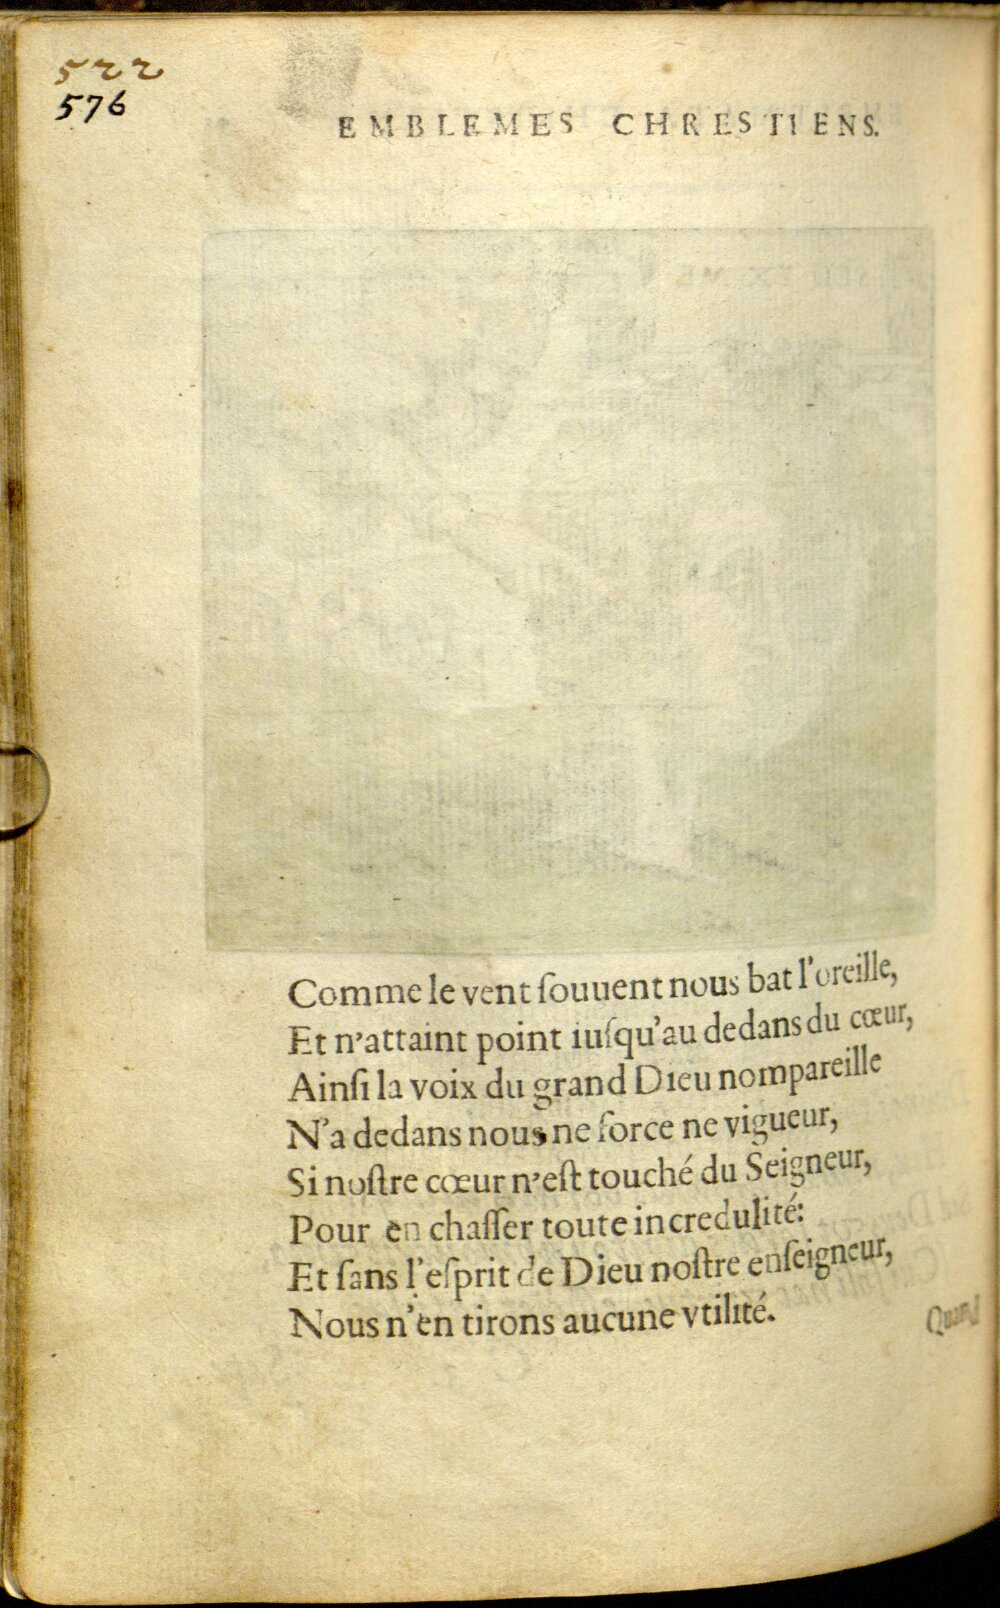 522
576
EMBLEMES CHRESTIENS.
Comme le vent ſouuent nous bat l'oreille,
Et n'attaint point iuſqu'au dedans du cœur,
Ainſi la voix du grand Dieu nompareille
N'a dedans nous ne force ne vigueur,
Si noſtre cœur n'eſt touché du Seigneur,
Pour en chaſſer toute incredulité:
Et ſans l'eſprit de Dieu noſtre enſeigneur,
Nous n'en tirons aucune vtilité.
Quand